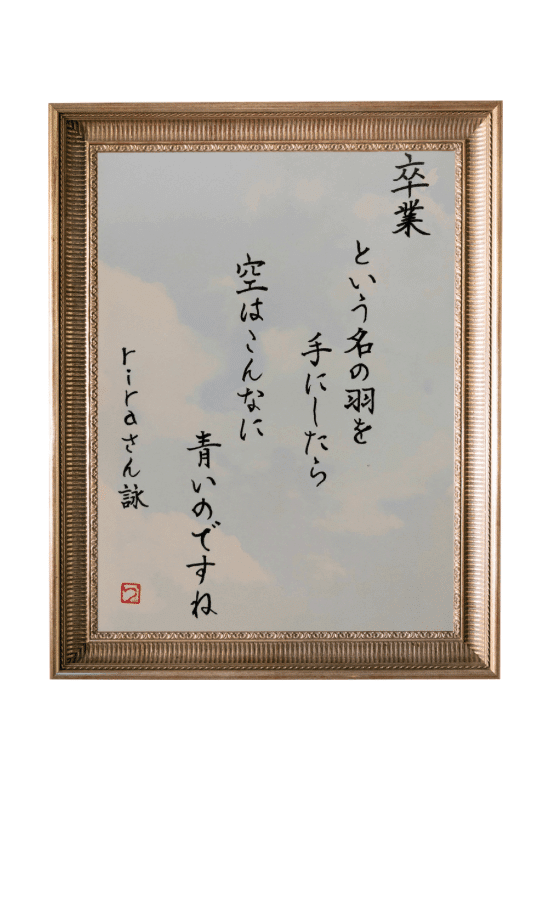 卒業
という名の羽を
手にしたら
空はこんなに
青いのですね
rıraさん詠
つ